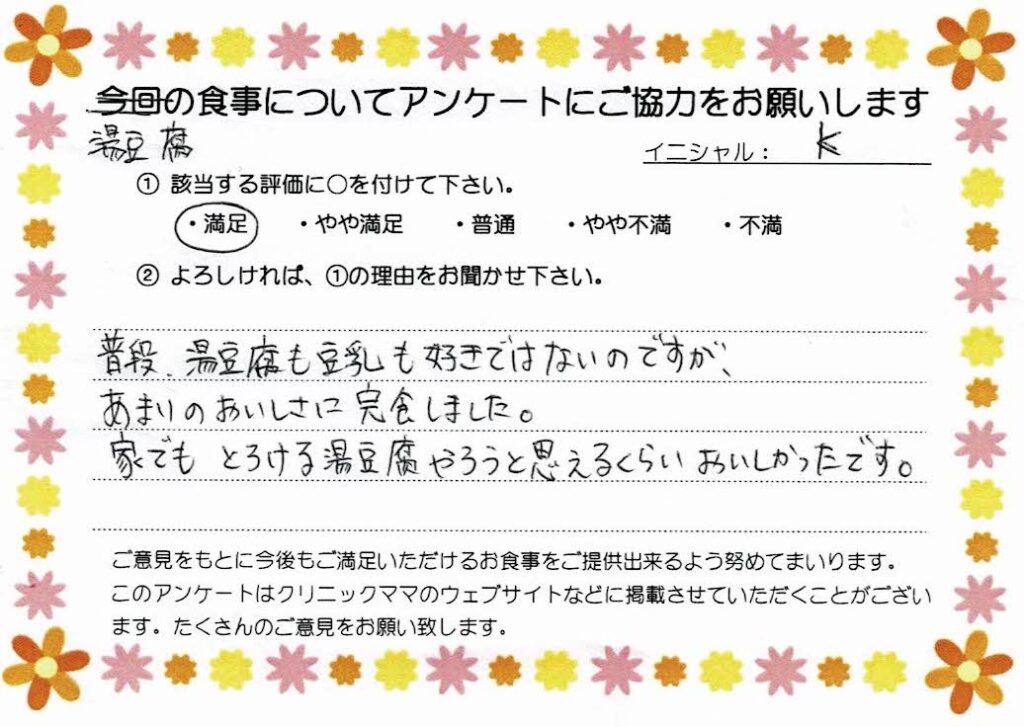 今回の食事についてアンケートにご協力をお願いします
湯豆腐
イニシャル： K
① 該当する評価に○を付けて下さい。
・満足 ・やや満足 ・普通 ・やや不満 ・不満
② よろしければ、①の理由をお聞かせ下さい。
普段、湯豆腐も豆乳も好きではないのですが、
あまりのおいしさに完食しました。
家でもとろける湯豆腐やろうと思えるくらいおいしかったです。
ご意見をもとに今後もご満足いただけるお食事をご提供出来るよう努めてまいります。
このアンケートはクリニックママのウェブサイトなどに掲載させていただくことがござい
ます。たくさんのご意見をお願い致します。